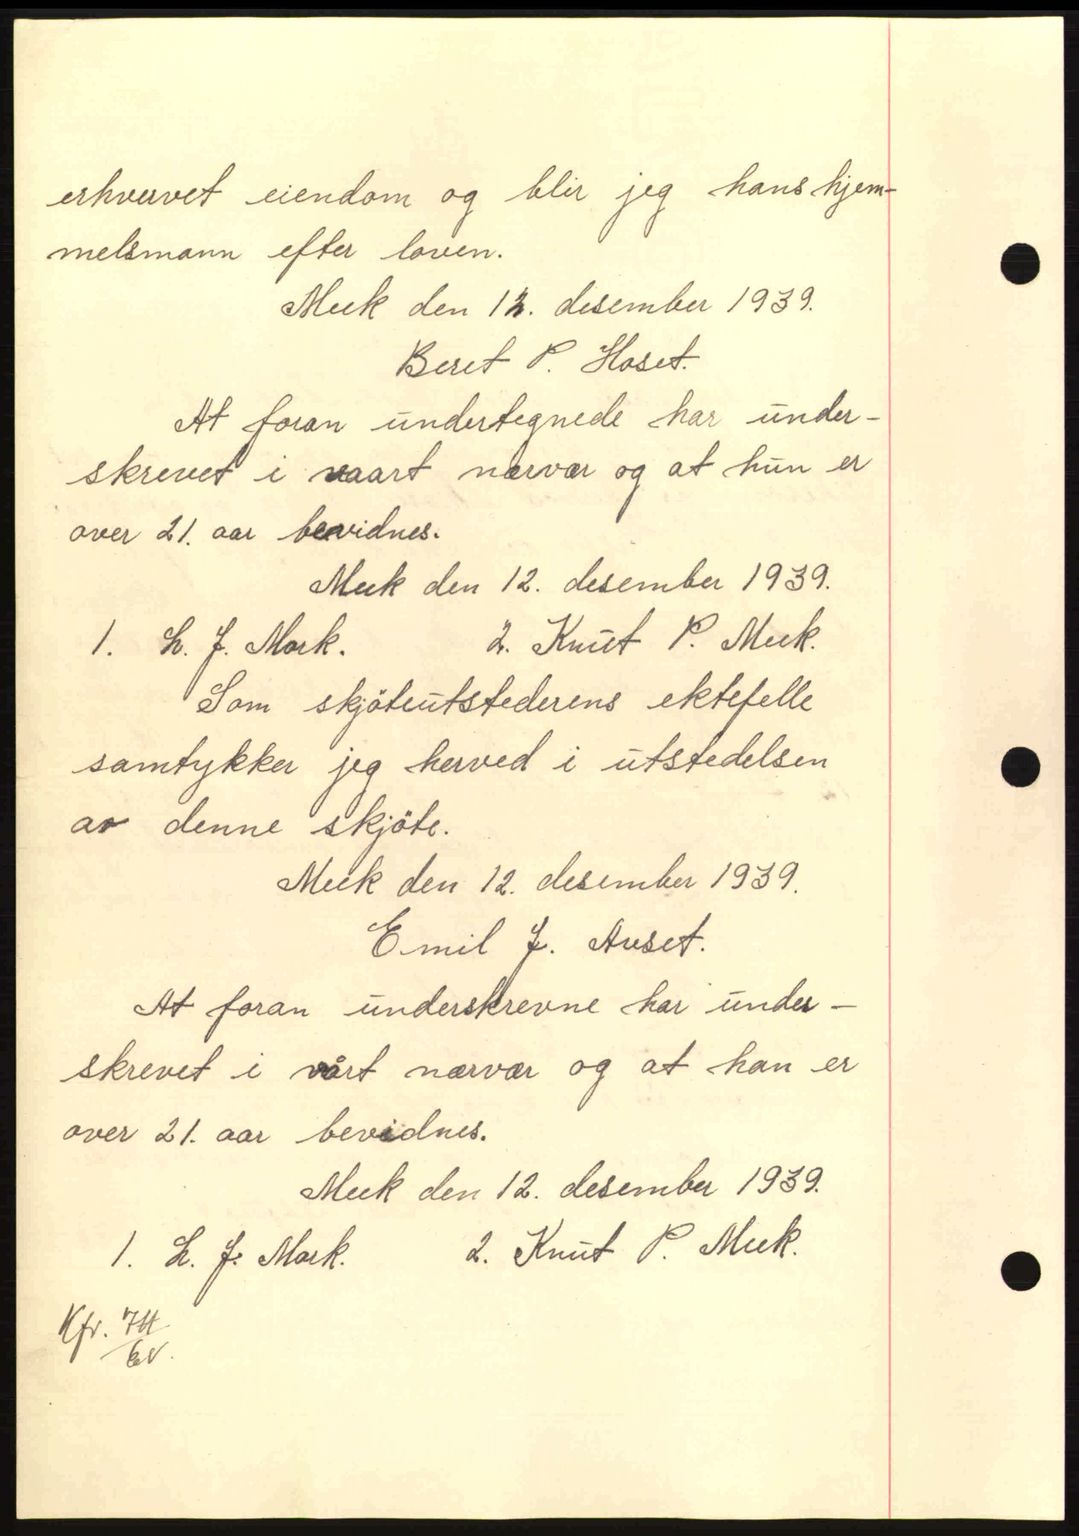 erhvervet eiendom og blir jeg hans hjem-
melsmann efter loven.
Meek den 12. desember 1939.
Beret P. Hoset.
At foran undertegnede har under-
skrevet i vaart nærvær og at hun er
over 21. aar bevidnes.
Meek den 12. desember 1939.
1. L. J. Mork. 2. Knut P. Meek.
Som skjöteutstederens ektefelle
samtykker jeg herved i utstedelsen
av denne skjöte.
Meek den 12. desember 1939.
Emil J. Auset.
At foran underskrevne har under-
skrevet i vårt nærvær og at han er
over 21. aar bevidnes.
Meek den 12. desember 1939.
1. L. J. Mork. 2. Knut P. Meek.
Kfr.